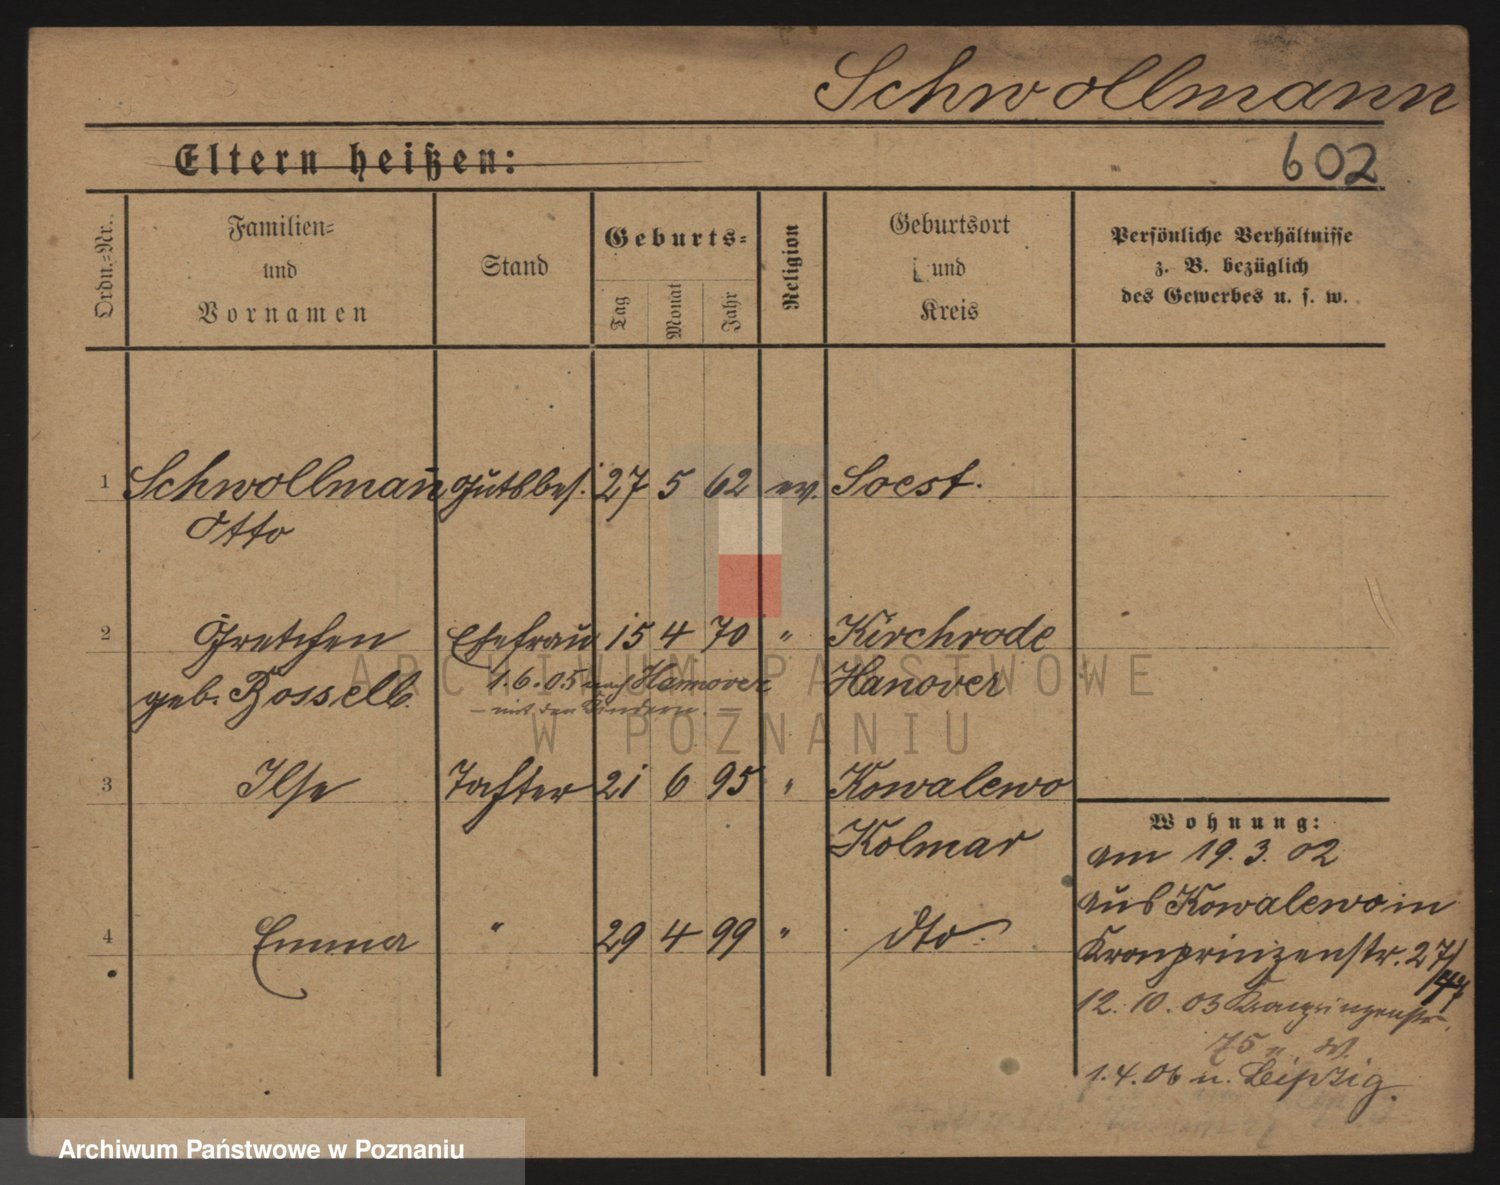 Schwollmann
Eltern heißen:
602
Ordn.-Nr.
Familien-
und
Vornamen
Stand
Geburts-
Tag
Monat
Jahr
Religion
Geburtsort
und
Kreis
Persönliche Verhältnisse
z. B. bezüglich
des Gewerbes u. s. w.
1 Schwollmann Gutsbes. 27 5 62 ev. Soest.
Otto
2 Gretchen Ehefrau 15 4 70 " Kirchrode
geb. Bosselb. 1.6.05 nach Hannover Hanover
– mit den Kindern. –
3 Ilse Tochter 21 6 95 " Kowalewo
Kolmar
4 Emma " 29 4 99 " dto.
Wohnung:
am 19. 3. 02
aus Kowalewo in
Kronprinzenstr. 27/
12. 10. 03 Kronprinzenstr.
75
1.4.06 n. Leipzig.
ARCHIWUM PAŃSTWOWE
W POZNANIU
Archiwum Państwowe w Poznaniu